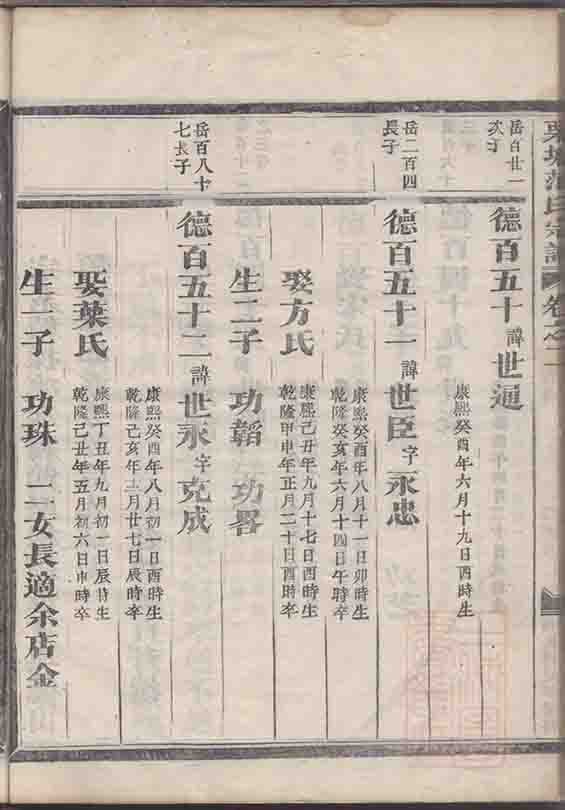 范氏宗譜 卷之二
岳百廿一次子
德百五十 諱世通
康熙癸酉年六月十九日酉時生
岳二百四長子
德百五十一 諱世臣字永忠
康熙癸酉年八月十一日卯時生
乾隆癸亥年六月十四日午時卒
娶方氏
康熙己丑年九月十七日酉時生
乾隆甲申年正月二十日酉時卒
生二子 功韜 功畧
岳百八十七長子
德百五十二 諱世永字克成
康熙癸酉年八月初一日酉時生
乾隆己亥年三月廿七日辰時卒
娶葉氏
康熙丁丑年九月初一日辰時生
乾隆己丑年五月初六日申時卒
生一子 功珠 二女長適余店金